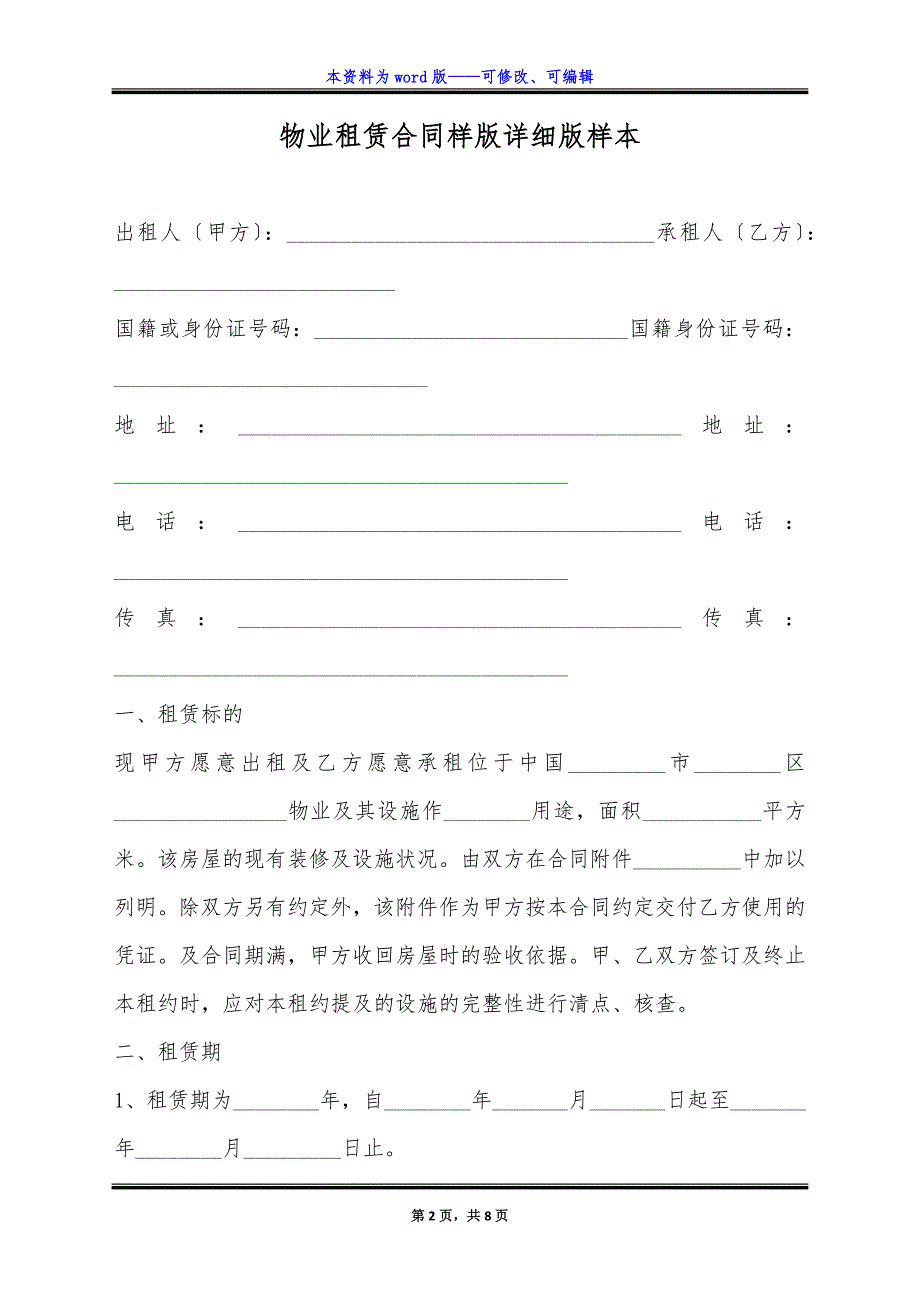 本资料为 word 版——可修改、可编辑
物业租赁合同样版详细版样本
出租人〔甲方〕：__________________________________承租人〔乙方〕：
__________________________
国籍或身份证号码：_____________________________国籍身份证号码：
_____________________________
地址：_________________________________________地址：
__________________________________________
电话：_________________________________________电话：
__________________________________________
传真：_________________________________________传真：
__________________________________________
一、租赁标的
现甲方愿意出租及乙方愿意承租位于中国_________市________区
________________物业及其设施作________用途，面积___________平方
米。该房屋的现有装修及设施状况。由双方在合同附件__________中加以
列明。除双方另有约定外，该附件作为甲方按本合同约定交付乙方使用的
凭证。及合同期满，甲方收回房屋时的验收依据。甲、乙双方签订及终止
本租约时，应对本租约提及的设施的完整性进行清点、核查。
二、租赁期
1、租赁期为________年，自________年_______月_______日起至_______
年________月_________日止。
第 2 页，共 8 页